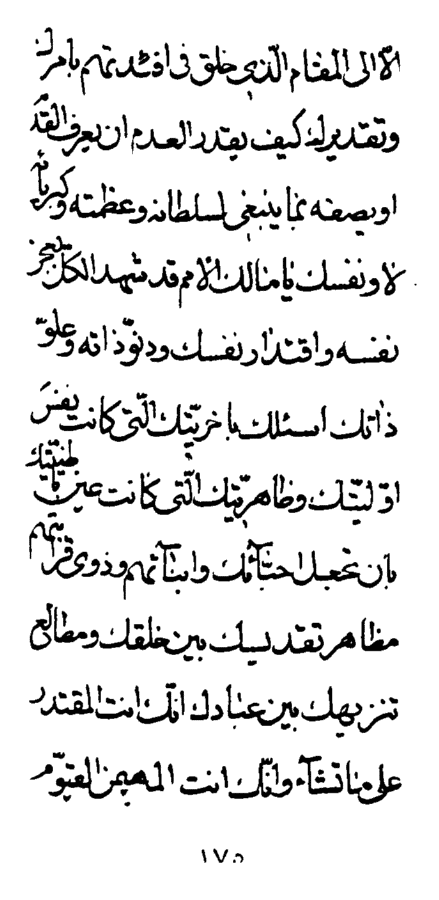 الّا الى المقام الّذى خلق فى افئدتهم بامرك
وتقديرك كيف يقدر العدم ان يعرف القدم
او يصفه بما ينبغى لسلطانه وعظمته وكبريائه
لا ونفسك يا مالك الامم قد شهد الكلّ بعجز
نفسه واقتدار نفسك ودنوّ ذاته وعلوّ
ذاتك اسئلك باخريّتك الّتى كانت نفس
اوّليّتك وظاهريّتك الّتى كانت عين باطنيّتك
بان تجعل احبّآئك وابنآئهم وذوى قرابتهم
مظاهر تقديسك بين خلقك ومطالع
تنزيهك بين عبادك انّك انت المقتدر
على ما تشآء وانّك انت المهيمن القيّوم
١٧٥